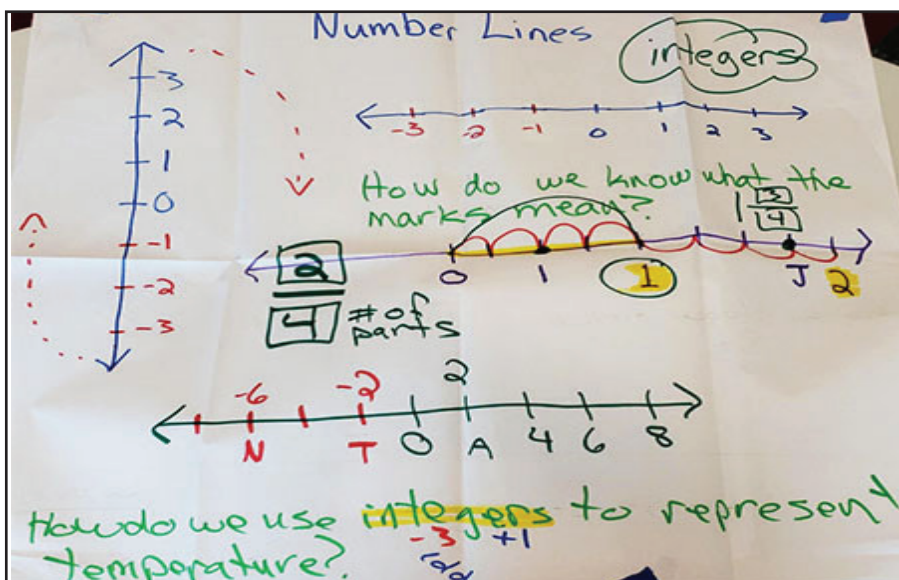 Number Lines
integers
3
2
1
0
-1
-2
-3
-3 -2 -1 0 1 2 3
How do we know what the
marks mean?
1 3/4
0 1 1 J 2
2
4 # of
parts
-6 -2 2
N T 0 A 4 6 8
How do we use integers to represent
temperature? -3 +1